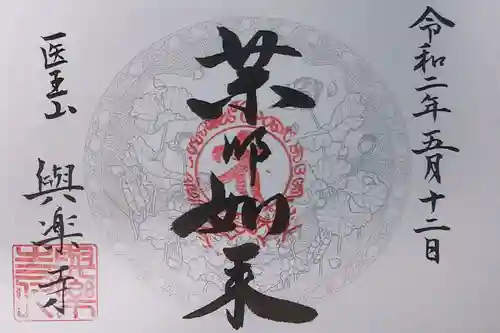 令和二年五月十二日
薬師如来
医王山
與楽寺